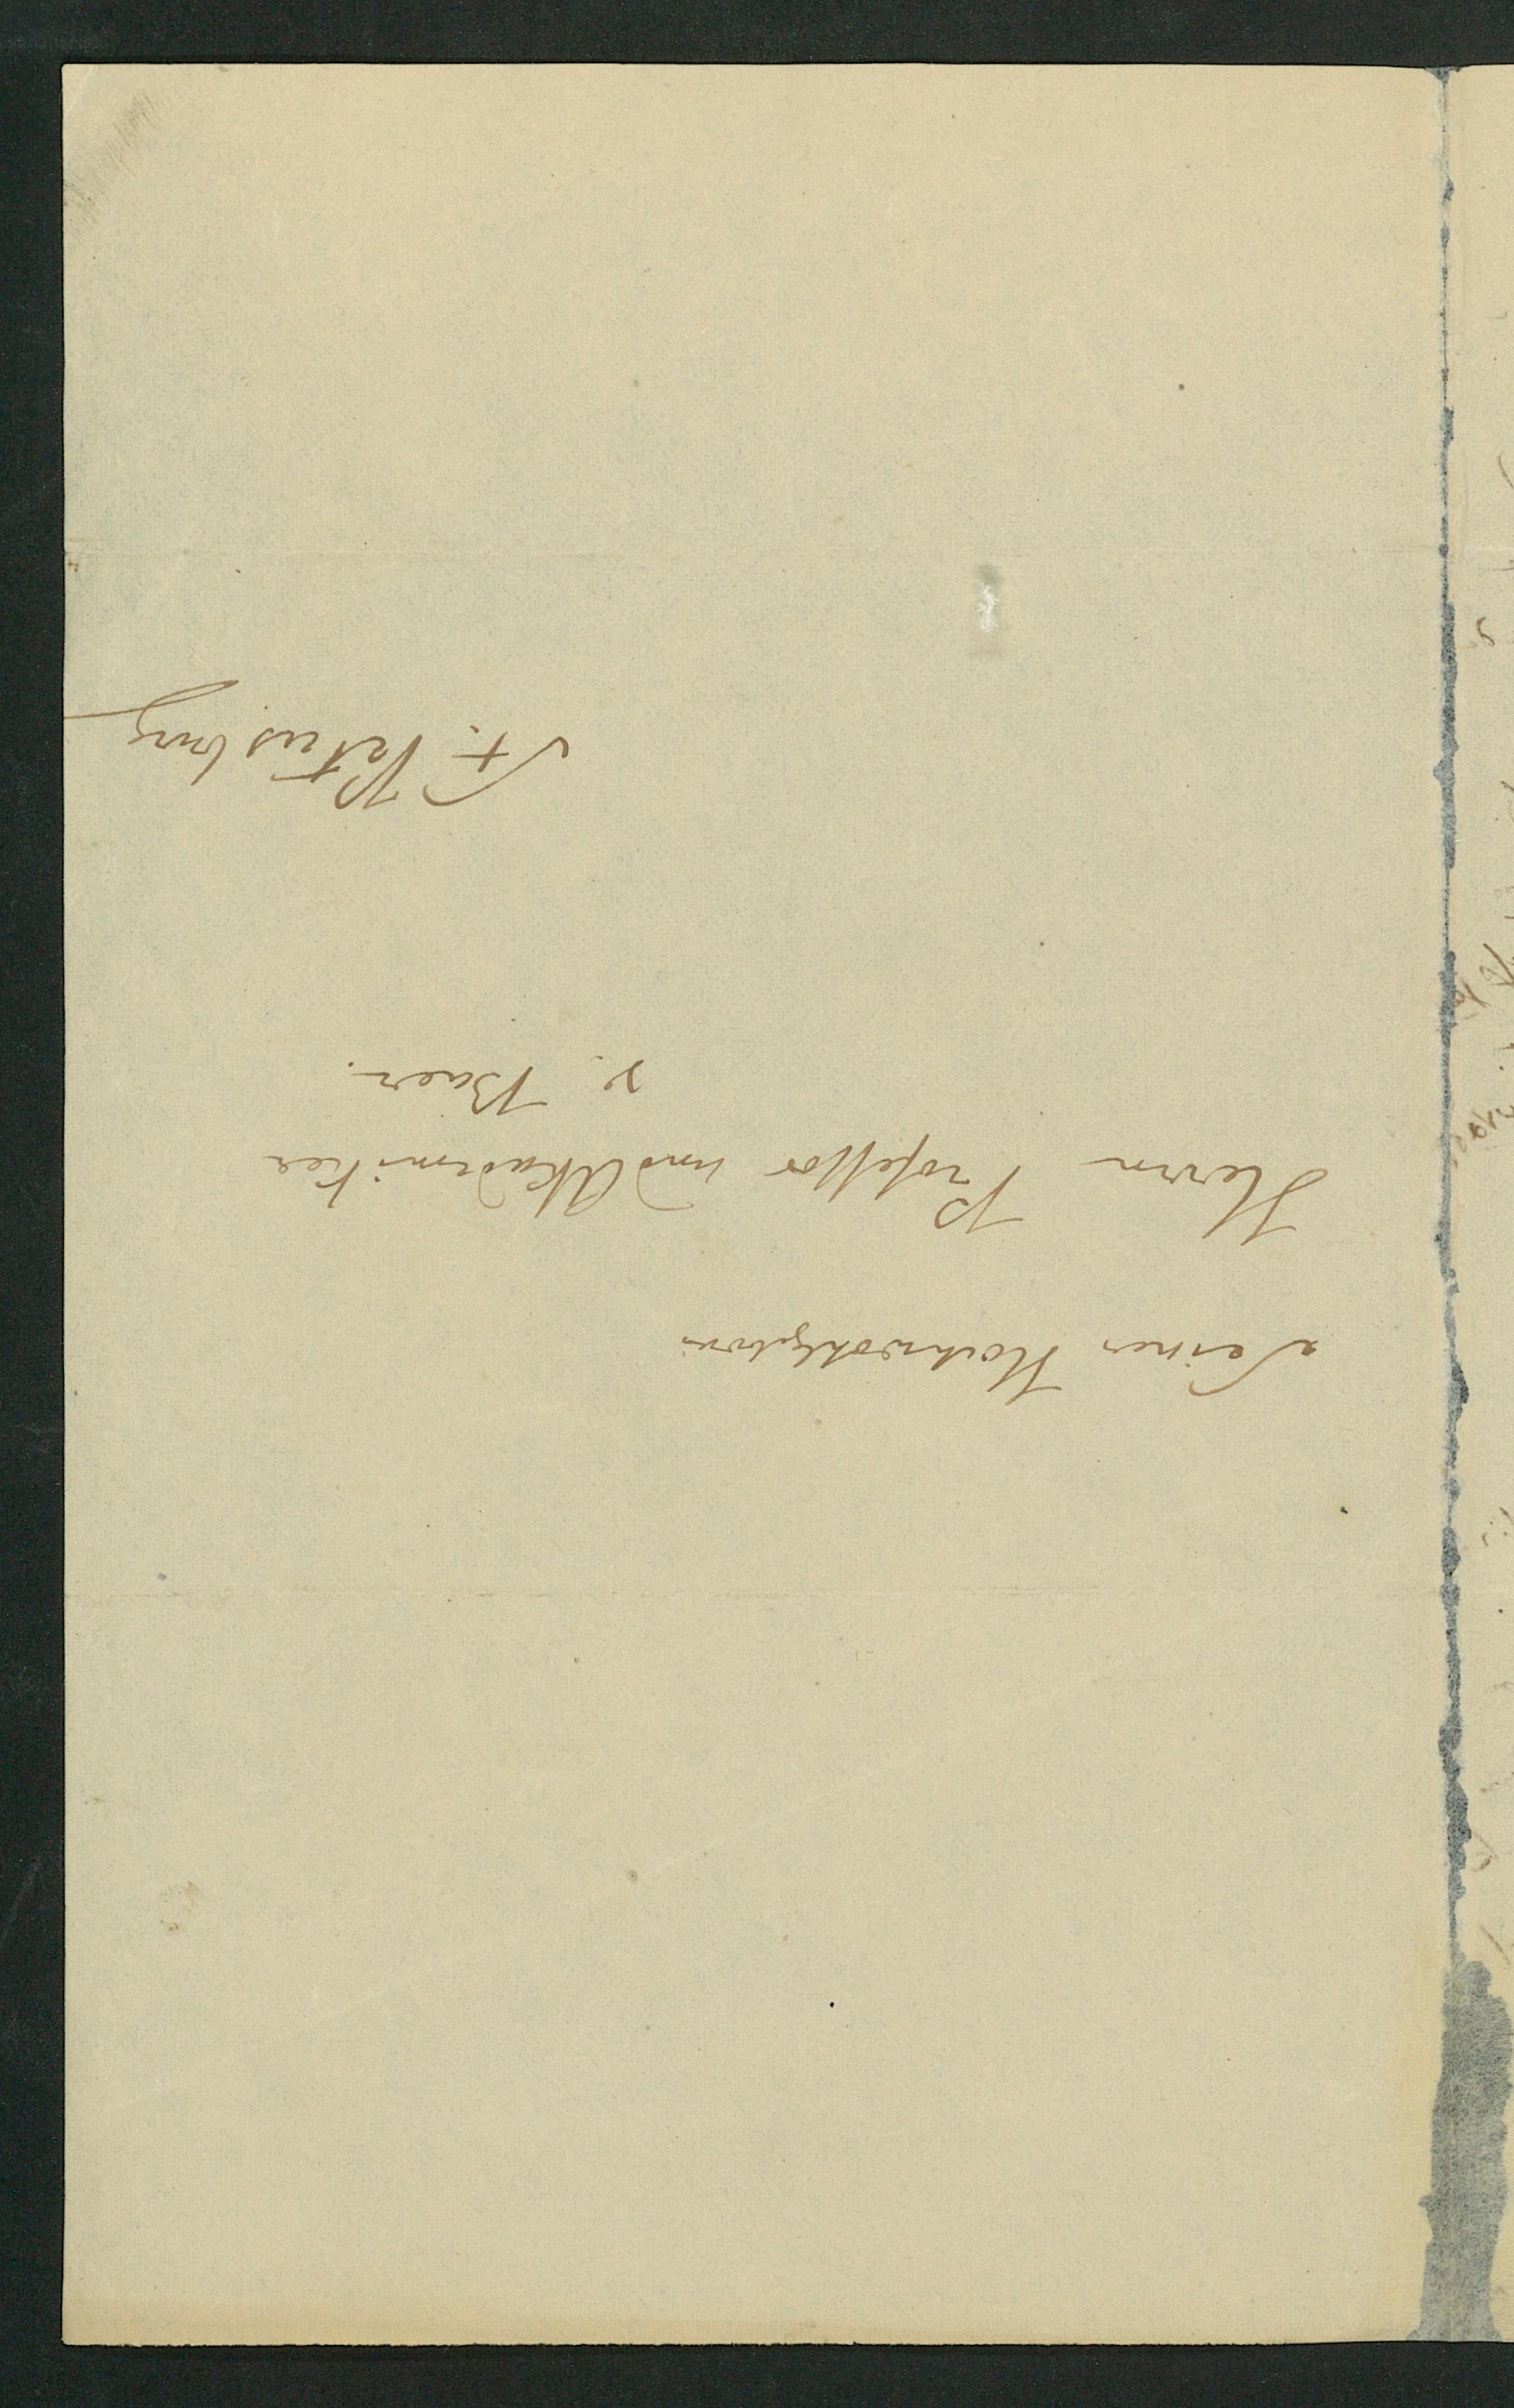 Seiner Hochwohlgebor.
Herrn Professor und Akademiker
v. Baer.
St. Petersburg